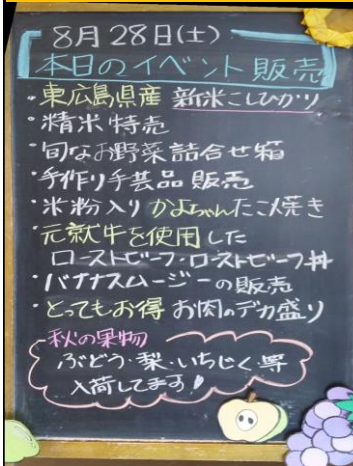 8月28日(土)
本日のイベント販売
・東広島県産 新米こしひかり
・精米特売
・旬なお野菜詰合せ箱
・手作り手芸品販売
・米粉入りかよちゃんたこ焼き
・元就牛を使用した
ローストビーフ・ローストビーフ丼
・バナナスムージーの販売
・とってもお得 お肉のデカ盛り
秋の果物
ぶどう・梨・いちじく等
入荷してます!